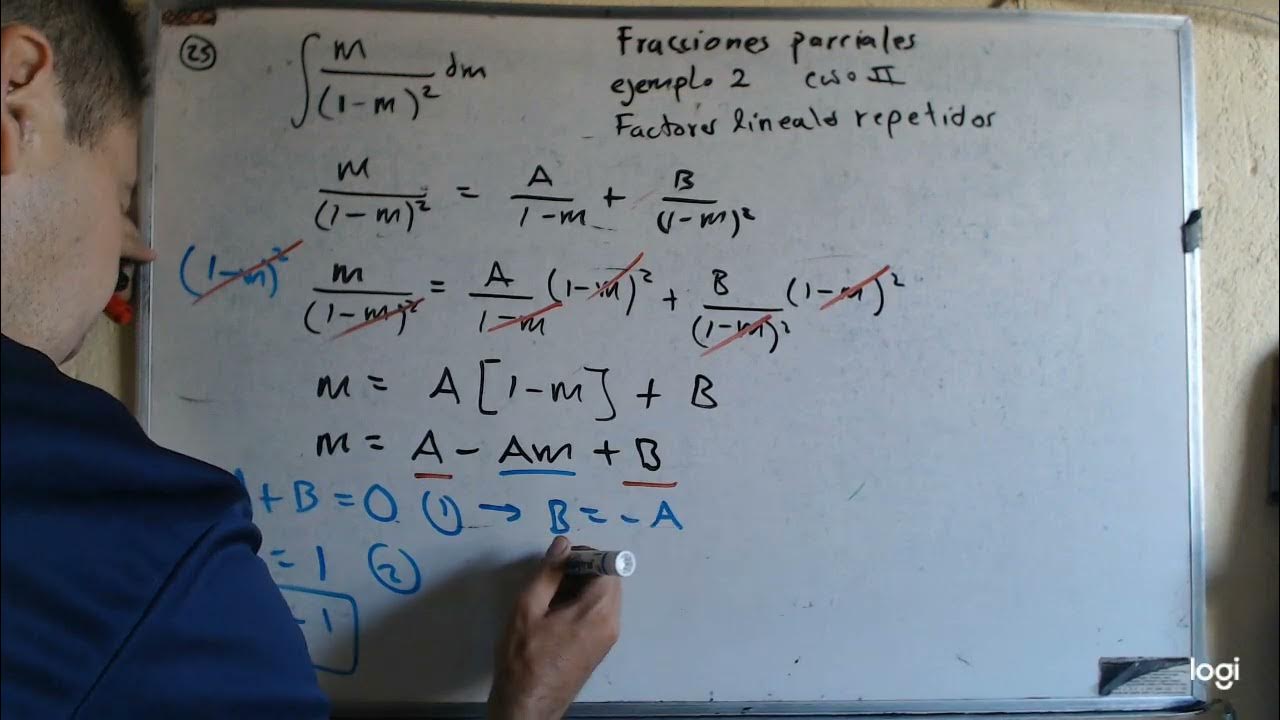 (25) ∫ m/(1-m)² dm
Fracciones parciales
ejemplo 2 caso II
Factores lineales repetidos
m/(1-m)² = A/(1-m) + B/(1-m)²
(1-m)² m/(1-m)² = A/(1-m) (1-m)² + B/(1-m)² (1-m)²
m = A[1-m] + B
m = A - Am + B
+ B = 0 (1) → B = - A
= 1 (2)
- 1
logi